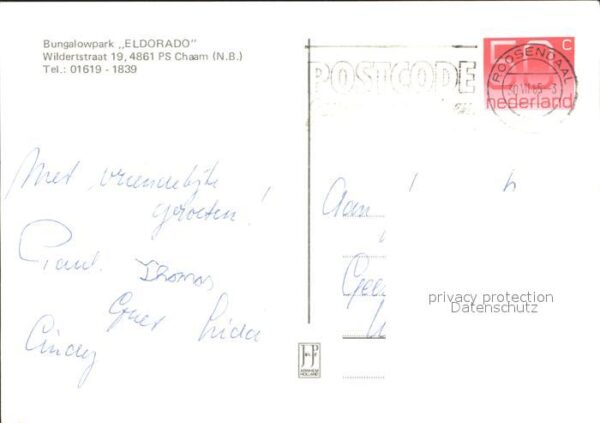 Bungalowpark „ELDORADO"
Wildertstraat 19, 4861 PS Chaam (N.B.)
Tel.: 01619 - 1839
POSTCODE
C
ROOSENDAAL
nederland
Met vriendelijke
groeten!
Paul. Thomas
Lida
Cindy
Aan
privacy protection
Datenschutz
JHP
ARNHEM
HOLLAND